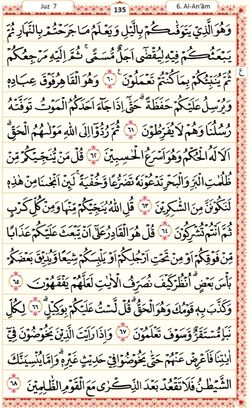 Juz 7 135 6. Al-An'âm
وَهُوَ الَّذِىْ يَتَوَفّٰٮكُمْ بِالَّيْلِ وَيَعْلَمُ مَا جَرَحْتُمْ بِالنَّهَارِ ثُمَّ
يَبْعَثُكُمْ فِيْهِ لِيُقْضٰٓى اَجَلٌ مُّسَمًّى ۚ ثُمَّ اِلَيْهِ مَرْجِعُكُمْ
ثُمَّ يُنَبِّئُكُمْ بِمَا كُنْتُمْ تَعْمَلُوْنَ ۝٦٠ وَهُوَ الْقَاهِرُ فَوْقَ عِبَادِهٖ
وَيُرْسِلُ عَلَيْكُمْ حَفَظَةً ؕ حَتّٰٓى اِذَا جَآءَ اَحَدَكُمُ الْمَوْتُ تَوَفَّتْهُ
رُسُلُنَا وَهُمْ لَا يُفَرِّطُوْنَ ۝٦١ ثُمَّ رُدُّوْۤا اِلَى اللّٰهِ مَوْلٰٮهُمُ الْحَقِّ ؕ
اَلَا لَهُ الْحُكْمُ وَهُوَ اَسْرَعُ الْحٰسِبِيْنَ ۝٦٢ قُلْ مَنْ يُّنَجِّيْكُمْ مِّنْ
ظُلُمٰتِ الْبَرِّ وَالْبَحْرِ تَدْعُوْنَهٗ تَضَرُّعًا وَّخُفْيَةً ۚ لَئِنْ اَنْجٰٮنَا مِنْ هٰذِهٖ
لَنَكُوْنَنَّ مِنَ الشّٰكِرِيْنَ ۝٦٣ قُلِ اللّٰهُ يُنَجِّيْكُمْ مِّنْهَا وَمِنْ كُلِّ كَرْبٍ
ثُمَّ اَنْتُمْ تُشْرِكُوْنَ ۝٦٤ قُلْ هُوَ الْقَادِرُ عَلٰٓى اَنْ يَّبْعَثَ عَلَيْكُمْ عَذَابًا
مِّنْ فَوْقِكُمْ اَوْ مِنْ تَحْتِ اَرْجُلِكُمْ اَوْ يَلْبِسَكُمْ شِيَعًا وَّيُذِيْقَ بَعْضَكُمْ
بَأْسَ بَعْضٍ ؕ اُنْظُرْ كَيْفَ نُصَرِّفُ الْاٰيٰتِ لَعَلَّهُمْ يَفْقَهُوْنَ ۝٦٥
وَكَذَّبَ بِهٖ قَوْمُكَ وَهُوَ الْحَقُّ ؕ قُلْ لَّسْتُ عَلَيْكُمْ بِوَكِيْلٍ ۝٦٦ لِكُلِّ
نَبَاٍ مُّسْتَقَرٌّ وَّسَوْفَ تَعْلَمُوْنَ ۝٦٧ وَاِذَا رَاَيْتَ الَّذِيْنَ يَخُوْضُوْنَ فِىْۤ
اٰيٰتِنَا فَاَعْرِضْ عَنْهُمْ حَتّٰى يَخُوْضُوْا فِىْ حَدِيْثٍ غَيْرِهٖ ؕ وَاِمَّا يُنْسِيَنَّكَ
الشَّيْطٰنُ فَلَا تَقْعُدْ بَعْدَ الذِّكْرٰى مَعَ الْقَوْمِ الظّٰلِمِيْنَ ۝٦٨